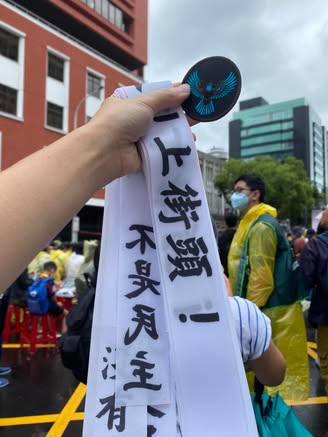 上街頭！
不是民主
沒有